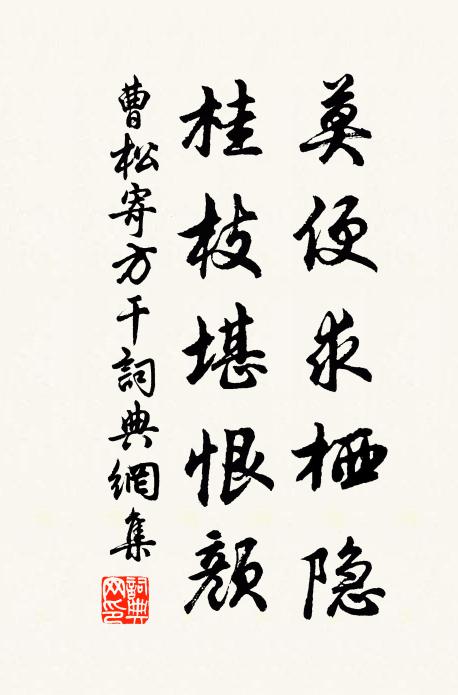 莫便求栖隐
桂枝堪恨颜
曹松寄方干詞典網集
詞典网印